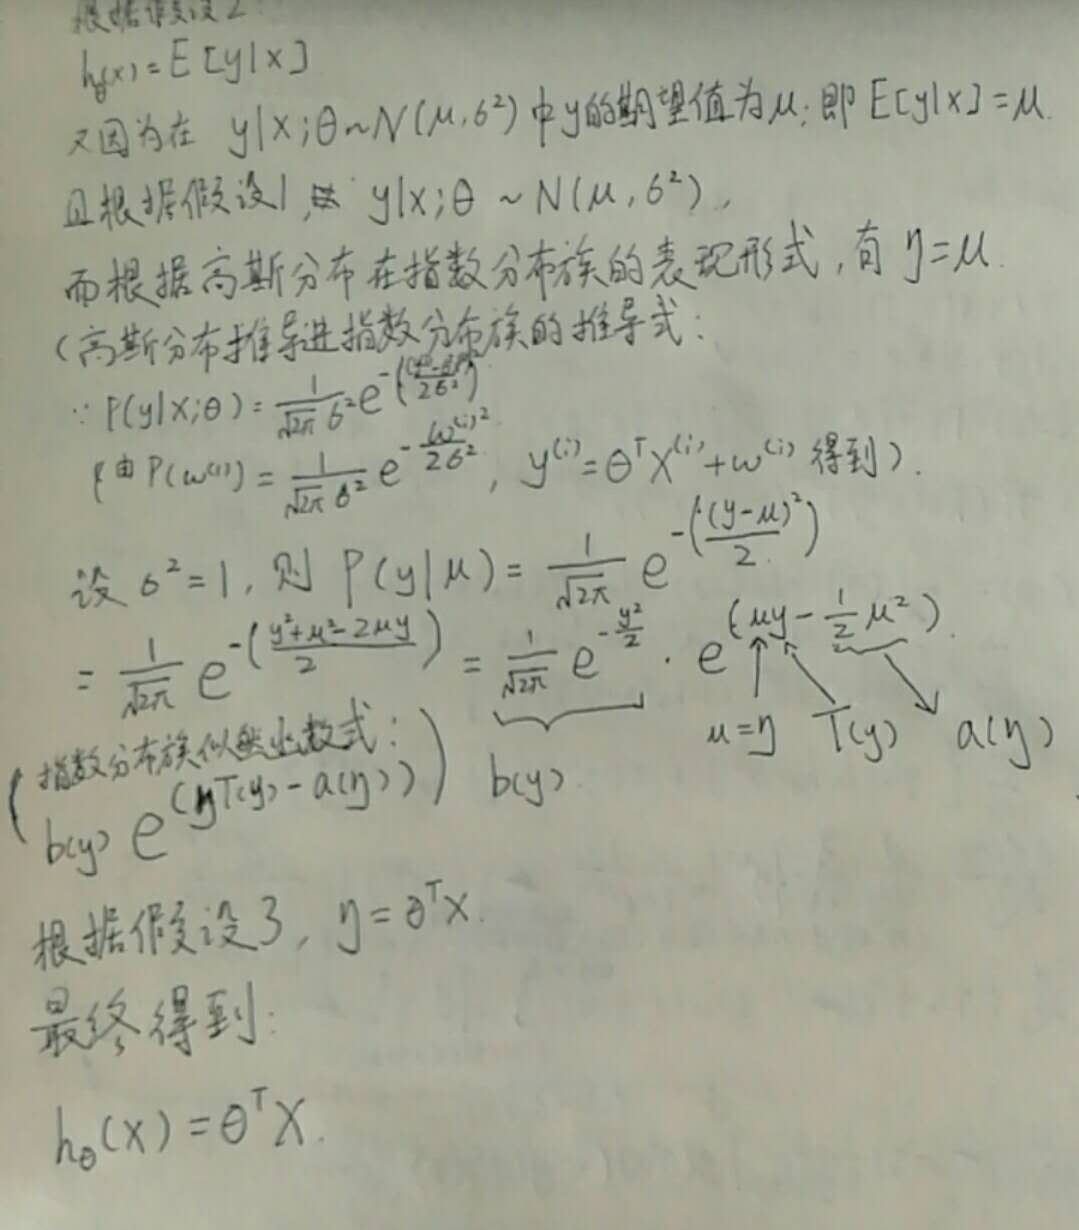 根据假设2:
hθ(x)=E[y|x]
又因为在 y|x;θ~N(μ,6²)中y的期望值为μ;即E[y|x]=μ.
且根据假设1, y|x;θ ~N(μ,6²),
而根据高斯分布在指数分布族的表现形式,有 η=μ.
(高斯分布推导进指数分布族的推导式:
∵P(y|x;θ)=1/(√2π 6²) e^-( /26²)
(由P(w⁽ⁱ⁾)=1/(√2π 6²) e^-(w⁽ⁱ⁾²/26²), y⁽ⁱ⁾=θᵀx⁽ⁱ⁾+w⁽ⁱ⁾得到).
设6²=1,则P(y|μ)=1/√2π e^-((y-μ)²/2)
=1/√2π e^-((y²+μ²-2μy)/2)=1/√2π e^(-y²/2)·e^(μy-½μ²).
b(y) μ=η T(y) a(η)
(指数分布族似然出数式:
b(y)e^(ηT(y)-a(η)))
根据假设3, η=θᵀx.
最终得到:
hθ(x)=θᵀx.